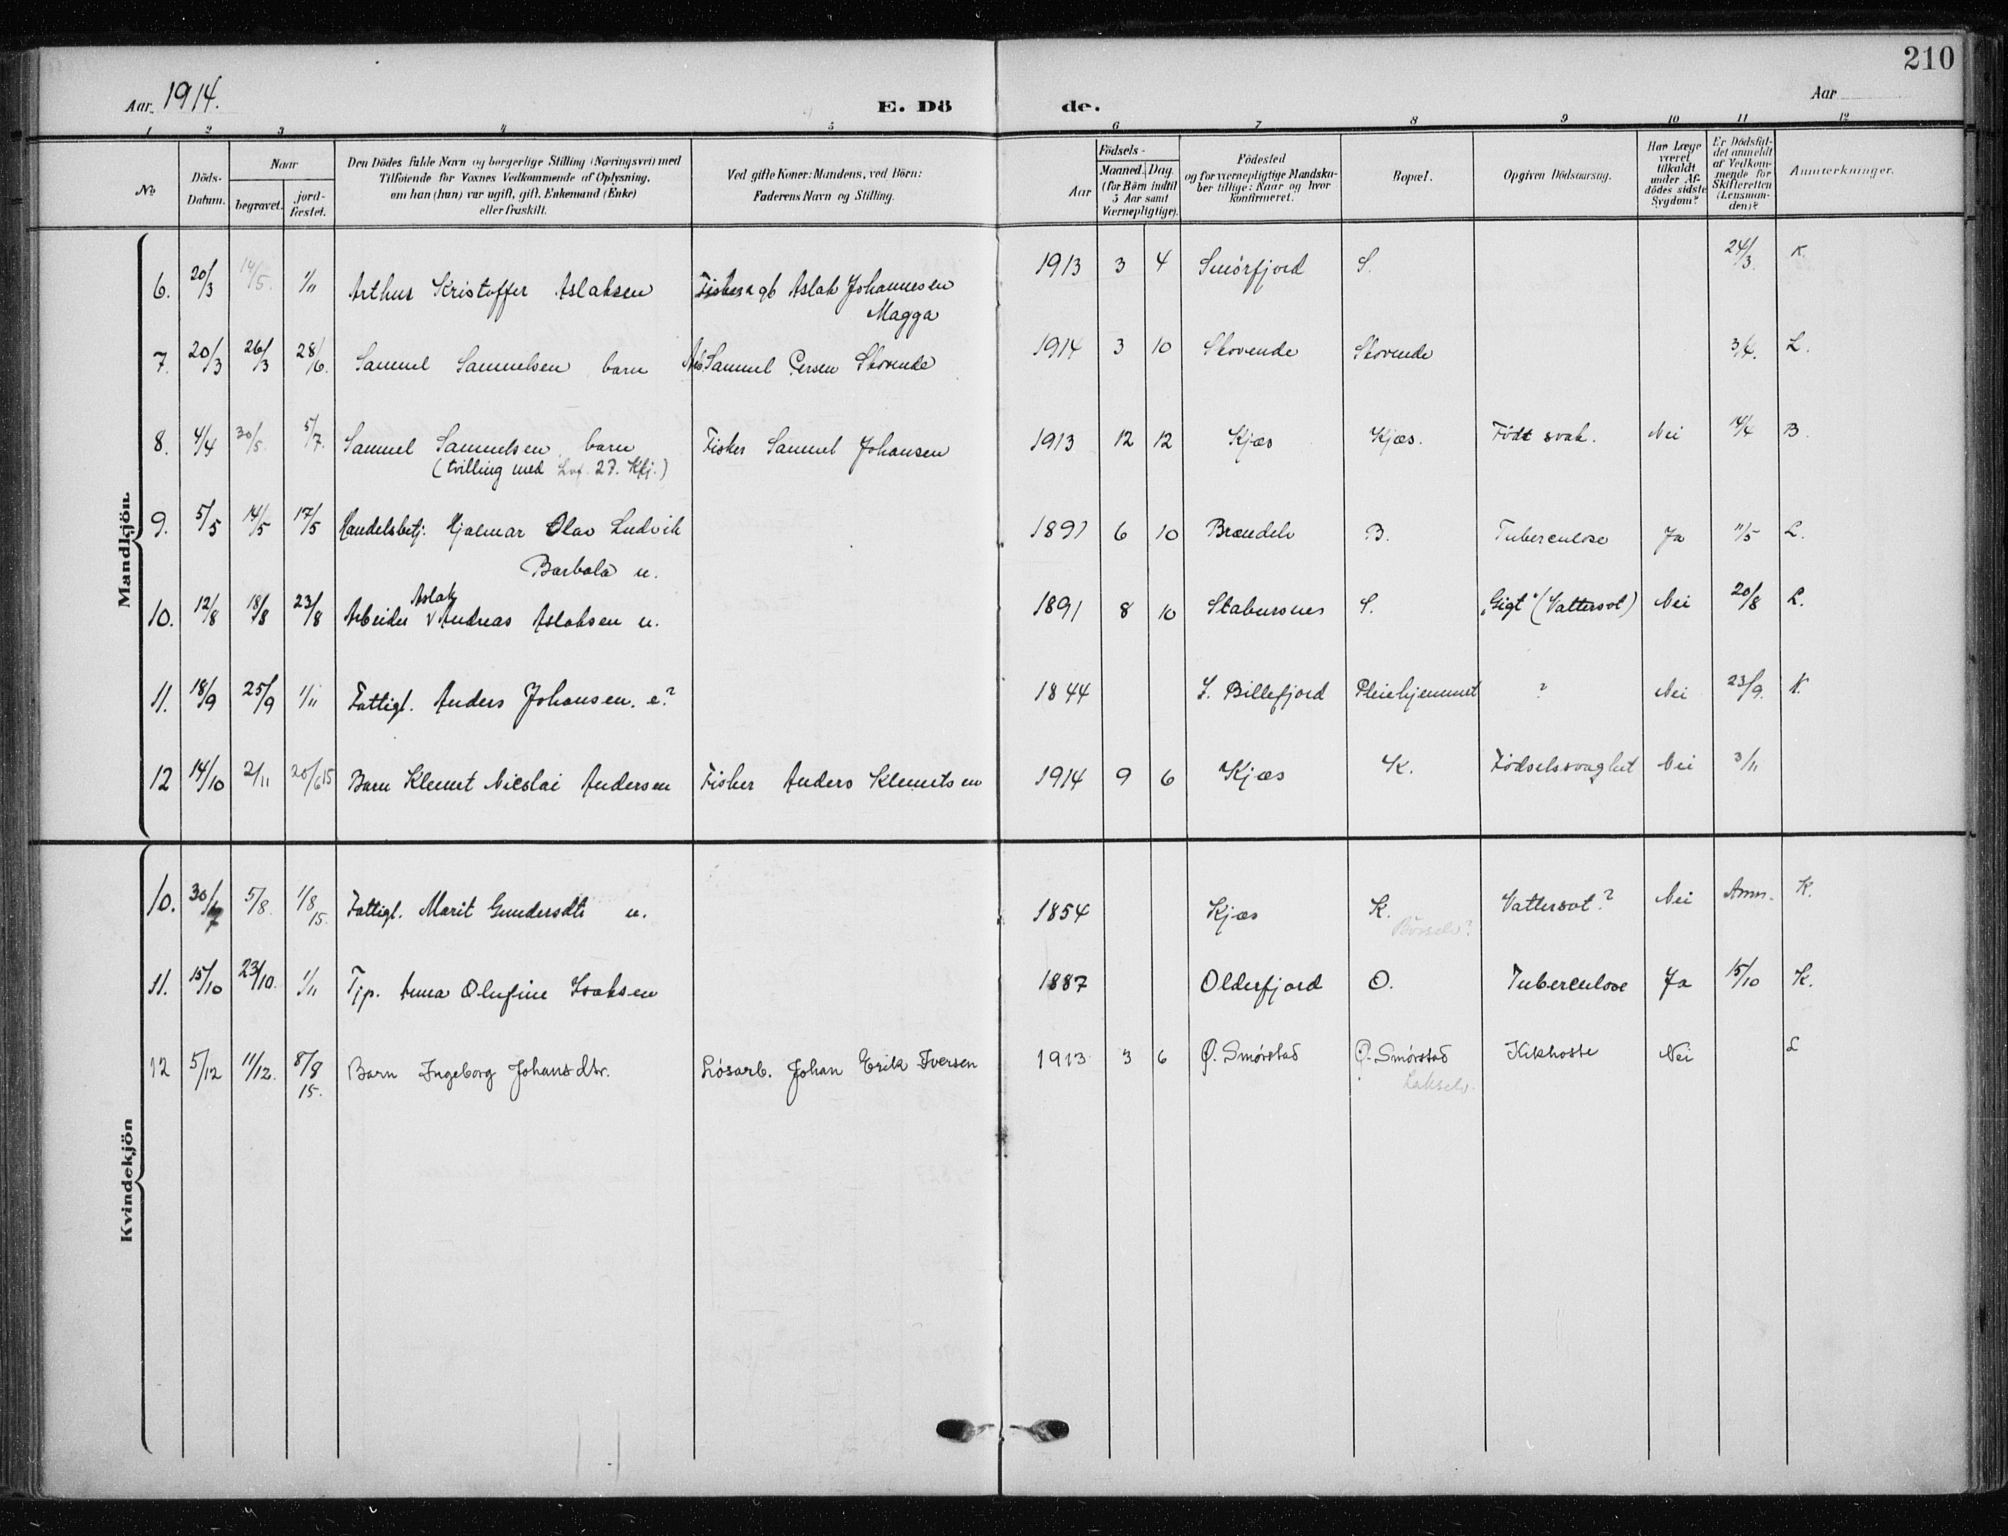 210
Aar 1914.
E. Dö
de.
Aar
1 2 3 4 5 6 7 8 9 10 11 12
No
Döds-Datum.
Naar
begravet.
jord-fæstet.
Den Dödes fulde Navn og borgerlige Stilling (Næringsvei) med
Tilföiende for Voxnes Vedkommende af Oplysning,
om han (hun) var ugift, gift, Enkemand (Enke)
eller fraskilt.
Ved gifte Koner: Mandens, ved Börn:
Faderens Navn og Stilling.
Födsels-
Aar
Maaned. Dag.
(for Börn indtil
5 Aar samt
Værnepligtige).
Födested
og for værnepligtige Mandska-
ber tillige: Naar og hvor
konfirmeret.
Bopæl.
Opgiven Dödsaarsag.
Har Læge
været
tilkaldt
under Af-
dödes sidste
Sygdom?
Er Dödsfal-
det anmeldt
af Vedkom-
mende for
Skifteretten
(Lensman-
den)?
Anmerkninger.
Mandkjön.
6. 20/3 14/5. 1/11 Arthur Kristoffer Aslaksen Fisker & gb Aslak Johannesen 1913 3 4 Smörfjord S. 24/3. K.
Magga
7. 20/3 26/3 28/6. Samuel Samuelsen barn Samuel Persen Skovende 1914 3 10 Skovende Skovende 3/4. L.
8. 4/4 30/5. 5/7. Samuel Samuelsen barn Fisker Samuel Johansen 1913 12 12 Kjæs Kjæs. Födt svak. Nei 14/4 B.
(tvilling med 27. Kkj.)
9. 5/5 14/5 17/5 Handelsbetj. Hjalmar Olav Ludvik 1891 6 10 Brændelv B. Tuberculose Ja 11/5 L.
Barbala u.
Aslak
10. 12/8 18/8 23/8 Arbeider v Andreas Aslaksen u. 1891 8 10 Stabursnes S. "Gigt" (Vattersot) Nei 20/8 L.
11. 18/9 25/9 1/11 Fattigl. Anders Johansen. e? 1844 Billefjord Pleiehjemmet ? Nei 23/9. K.
12 14/10 2/11 20/6 15 Barn Klemet Nicolai Andersen Fisker Anders Klemetsen 1914 9 6 Kjæs K. Födselssvaghet Nei 3/11
Kvindekjön
10. 30/7 5/8. 1/8 15. Fattigl. Marit Gundersdtr u. 1854 Kjæs K. Vattersot? Nei Anm. K.
Börselv?
11. 15/10 23/10. 1/11 Tjp. Anna Olufine Isaksen 1887 Olderfjord O. Tuberculose Ja 15/10 K.
12 5/12 11/12. 8/8 15. Barn Ingeborg Johansdtr. Lösarb. Johan Erik Iversen 1913 3 6 Ø. Smörstad Ø. Smörstad Kikhoste Nei L
Lakselv.